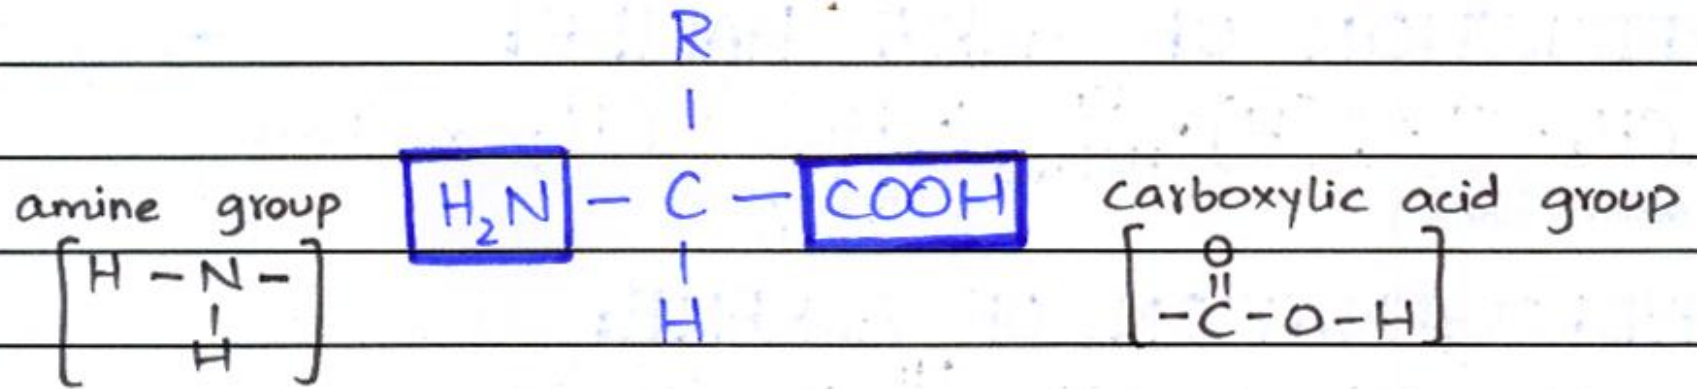 R
|
amine group H₂N – C – COOH carboxylic acid group
| O
[H – N – ‖
| H [– C – O – H]
H]